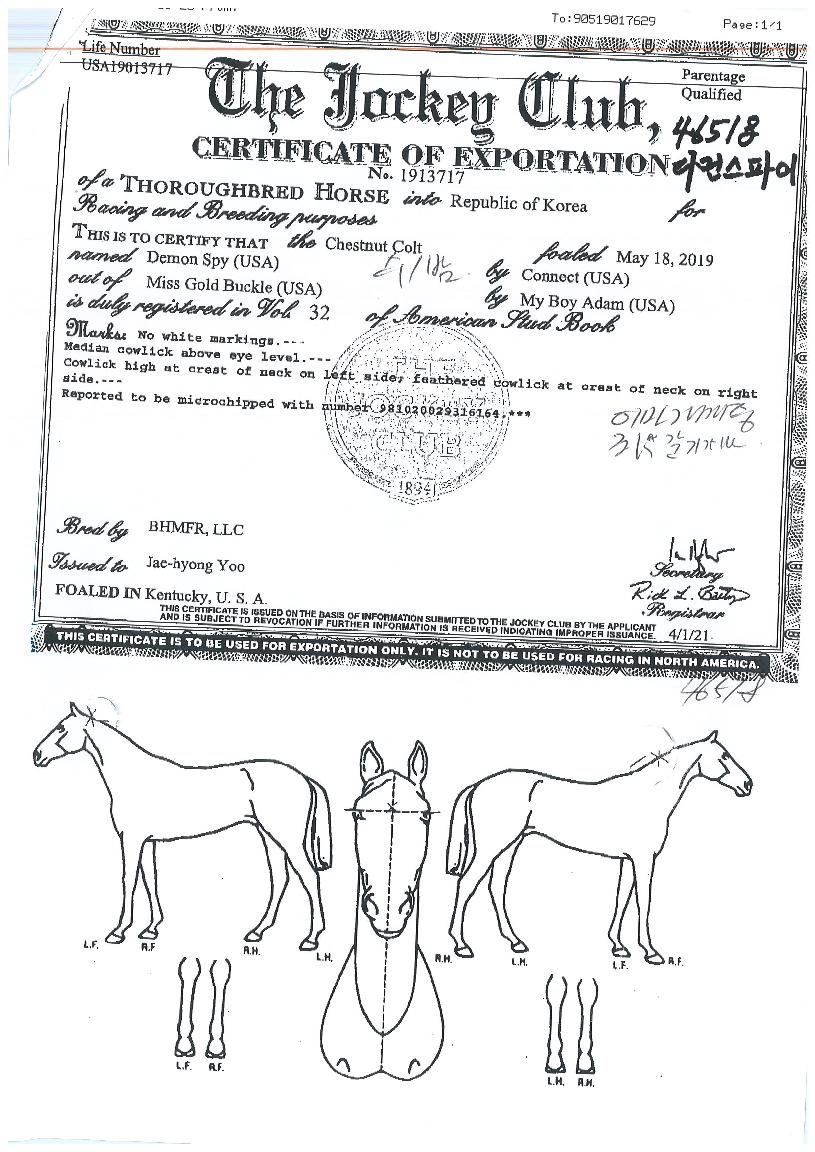 To:90519017629 Page:1/1
Life Number
USA19013717
Parentage
Qualified
The Jockey Club,
46518
CERTIFICATE OF EXPORTATION
No. 1913717
of a THOROUGHBRED HORSE into Republic of Korea for
Racing and Breeding purposes
THIS IS TO CERTIFY THAT the Chestnut Colt
named Demon Spy (USA) foaled May 18, 2019
out of Miss Gold Buckle (USA) by Connect (USA)
by My Boy Adam (USA)
is duly registered in Vol. 32 of American Stud Book
Marks: No white markings.---
Median cowlick above eye level.---
Cowlick high at crest of neck on left side; feathered cowlick at crest of neck on right
side.---
Reported to be microchipped with number 981020029316164.***
THE
JOCKEY
CLUB
1894
Bred by BHMFR, LLC
Issued to Jae-hyong Yoo
Secretary
Registrar
FOALED IN Kentucky, U. S. A.
THIS CERTIFICATE IS ISSUED ON THE BASIS OF INFORMATION SUBMITTED TO THE JOCKEY CLUB BY THE APPLICANT
AND IS SUBJECT TO REVOCATION IF FURTHER INFORMATION IS RECEIVED INDICATING IMPROPER ISSUANCE. 4/1/21
THIS CERTIFICATE IS TO BE USED FOR EXPORTATION ONLY. IT IS NOT TO BE USED FOR RACING IN NORTH AMERICA.
46518
L.F. R.F. R.H. L.H. R.H. L.H. L.F. R.F.
L.F. R.F. L.H. R.H.